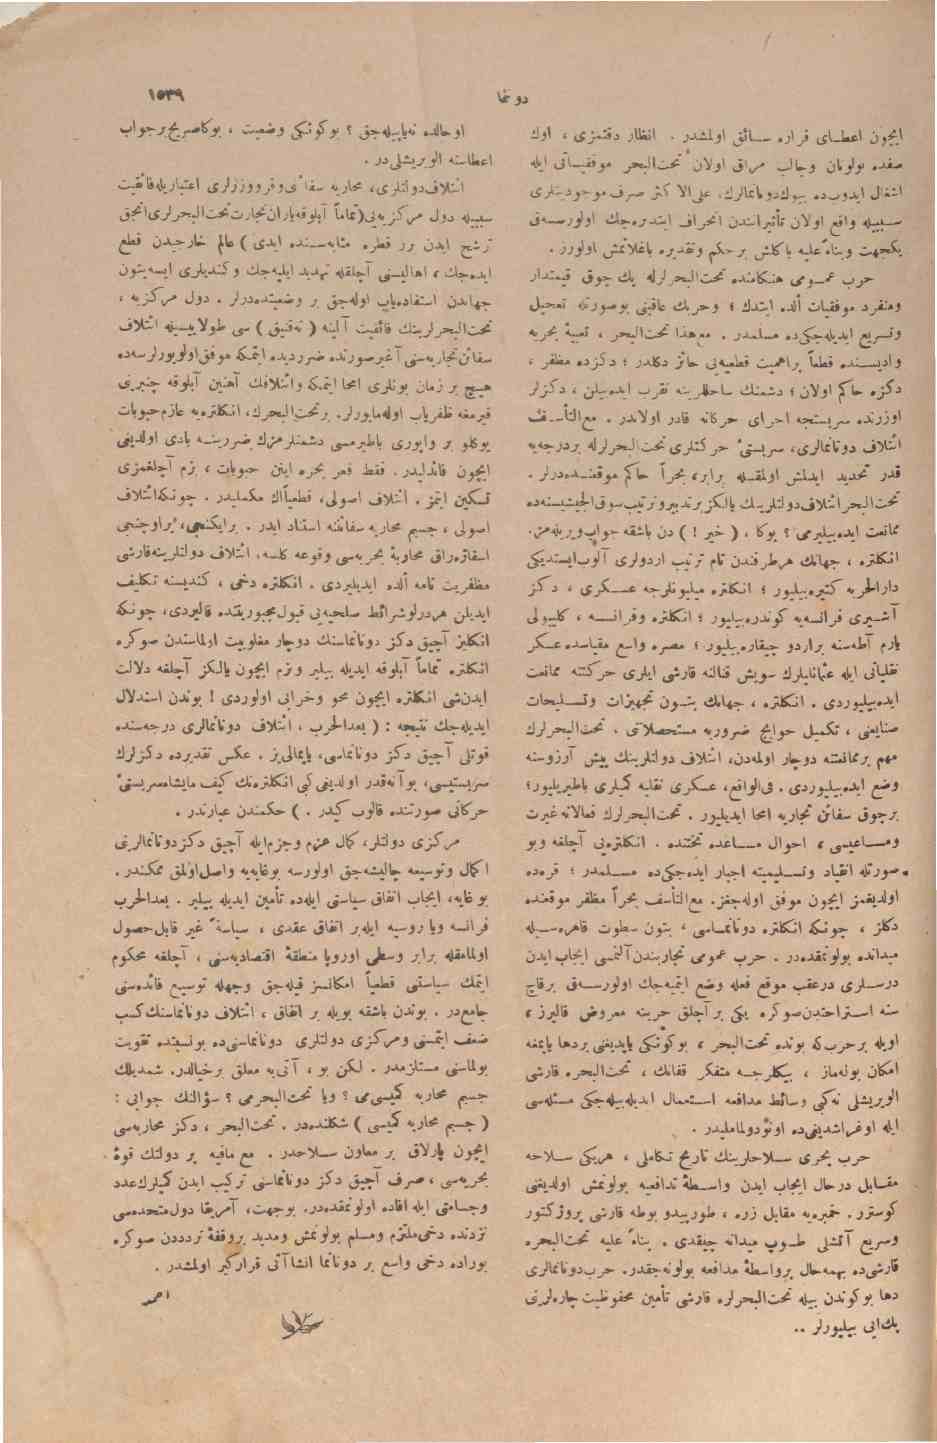 دوننما
١٥٣٩
ایچون اعطــای قراره ســائق اولمشدر . انظار دقتمزی ، اوك
صفده بولونان وجالب مراق اولان تحت‌البحر موفقیــاتی ایله
اشغال ایدوب‌ده بیوك‌دونانمالرك، علی‌الاکثر صرف موجودیتلری
ســببیله واقع اولان تأثیرلرندن انحراف ایتدره‌جك اولورســه‌ق
یکجهت وبناءً علیه یاکلش بر حکم وتقدیره باغلانمش اولورز .
حرب عمــومی هنکامنده تحت‌البحرلرله پك چوق قیمتدار
ومنفرد موفقیات ألده ایتدك ؛ وحربك عاقبتی بوصورتله تعجیل
وتسریع ایدیله‌جکی‌ده مسلمدر . مع‌هذا تحت‌البحر ، تعبیهٔ بحریه
وادیســنده قطعاً براهمیت قطعیه‌یی حائز دکلدر ؛ دکزده مظفر ،
دکزه حاکم اولان ؛ دشمنك ساحللرینه تقرب ایده‌بیلن ، دکزلر
اوزرنده سربستجه اجرای حرکاته قادر اولاندر . مع‌التأســف
ائتلاف دونانمالری، سربستیٔ حرکتلری تحت‌البحرلرله بردرجه‌یه
قدر تحدید ایدلمش اولمقــله برابر، بحراً حاکم موقعنــده‌درلر .
تحت‌البحر ائتلاف‌دولتلرینك یالکز برتدبیر وترتیب سوق‌الجیشیسنه‌ده
ممانعت ایده‌بیلیرمی ؟ بوکا ، ( خیر ! ) دن باشقه جواب ویریله‌مز.
انکلتره ، جهانك هرطرفندن تام ترتیب اردولری آلوب‌ایستدیکی
دارالحربه کتیره‌بیلیور ؛ انکلتره میلیونلرجه عســکری ، دکز
آشیری فرانسه‌یه کوندره‌بیلیور ؛ انکلتره وفرانســه ، کلیبولی
یارم آطه‌سنه براردو چیقاره‌بیلیور ؛ مصره واسع مقیاسده عسکر
نقلیاتی ایله عثمانلیلرك سویش قنالنه قارشی ایلری حرکتنه ممانعت
ایده‌بیلیوردی . انکلتره ، جهانك بتــون تجهیزات وتســلیحات
صنایعنی ، تکمیل حوایج ضروریه مستحصلاتی . تحت‌البحرلرك
مهم برممانعتنه دوچار اولمه‌دن، ائتلاف دولتلرینك پیش آرزوسنه
وضع ایده‌بیلیوردی . فی‌الواقع، عسکری نقلیه کمیلری باطیریلیور؛
برچوق سفائن تجاریه امحا ایدیلیور . تحت‌البحرلرك فعالانه غیرت
ومســاعیسی ، احوال مســاعده تحتنده . انکلتره‌یی آچلغه وبو
صورتله انقیاد وتســلیمیته اجبار ایده‌جکی‌ده مســلمدر ؛ قره‌ده
اولدیقمز ایچون موفق اوله‌جغز. مع‌التأسف بحراً مظفر موقعنده
دکلز ، چونکه انکلتره دونانمــاسی ، بتون سطوت قاهره‌ســیله
میدانده بولونمقده‌در . حرب عمومی تجاربندن آلنمسی ایجاب ایدن
درســلری درعقب موقع فعله وضع ایتمیه‌جك اولورســه‌ق برقاچ
سنه استراحتدن‌صوکره یکی بر آچلق حربنه معروض قالیرز ،
اویله برحرب‌که بونده تحت‌البحر ، بوکونکی یاپدیغنی بردها یاپمغه
امکان بوله‌ماز ، بیکلرجــه متفکر قفانك ، تحت‌البحره قارشی
الویریشلی نه‌کبی وسائط مدافعه اســتعمال ایدیله‌بیله‌جکی مسئله‌سی
ایله اوغراشدیغی‌ده اونودولماملیدر .
حرب بحری ســلاحلرینك تاریخ تکاملی ، هریکی ســلاحه
مقــابل درحال ایجاب ایدن واســطهٔ تدافعیه بولونمش اولدیغنی
کوسترر . خمبره‌یه مقابل زره ، طورپیدو بوطه قارشی پروژکتور
وسریع آتشلی طــوپ میدانه چیقدی . بناءً علیه تحت‌البحره
قارشی‌ده بهمه‌حال برواسطهٔ مدافعه بولونه‌جقدر. حرب‌دونانمالری
دها بوکوندن بیله تحت‌البحرلره قارشی تأمین محفوظیت چاره‌لرینی
پك‌ایی بیلیورلر ..
اوحالده نه‌یاپیله‌جق ؟ بوکونکی وضعیت ، بوکاصریح‌برجواب
اعطاسنه الویریشلی‌در .
ائتلاف‌دولتلری، محاربه سفائنی وقرووزورلری اعتباریله‌فائقیت
سببیله دول مرکزیه‌یی (تماماً آبلوقه‌یاران‌تجارت تحت‌البحرلری‌انجق
ترشح ایدن برر قطره مثابه‌ســنده ایدی ) عالم خارجیدن قطع
ایده‌جك ، اهالیسنی آچلقله تهدید ایلیه‌جك وکندیلری ایسه‌بتون
جهاندن استفاده‌یاب اوله‌جق بر وضعیتده‌درلر . دول مرکزیه ،
تحت‌البحرلرینك فائقیت آلینه ( ته‌قنیق ) سی طولاییسیله ائتلاف
سفائن‌تجاریه‌سنی آغیرصورتده ضرردیده ایتمکه موفق‌اولویورلرسه‌ده
هیچ بر زمان بونلری امحا ایتمکه وائتلافك آهنین آبلوقه چنبرینی
قیرمغه ظفریاب اوله‌مایورلر. برتحت‌البحرك، انکلتره‌یه عازم‌حبوبات
یوکلو بر واپوری باطیرمسی دشمنلرمزك ضررینــه بادی اولدیغی
ایچون فائدلیدر. فقط قعر بحره اینن حبوبات ، بزم آچلغمزی
تسکین ایتمز . ائتلاف اصولی، قطعیاً اك مکملیدر . چونکه‌ائتلاف
اصولی ، جسیم محاربه سفائننه استناد ایدر . برایکنجی، براوچنجی
اسقاژه‌راق محاربهٔ بحریه‌سی وقوعه کلسه، ائتلاف دولتلرینه‌قارشی
مظفریت تامه ألده ایدیلیردی . انکلتره دخی ، کندیسنه تکلیف
ایدیلن هردرلوشرائط صلحیه‌یی قبول‌مجبوریتنده قالیردی، چونکه
انکلیز آچیق دکز دونانماسنك دوچار مغلوبیت اولماسندن صوکره
انکلتره تماماً آبلوقه ایدیله بیلیر وبزم ایچون یالکز آچلغه دلالت
ایدن‌شی انکلتره ایچون محو وخرابی اولوردی ! بوندن استدلال
ایدیله‌جك نتیجه : ( بعدالحرب ، ائتلاف دونانمالری درجه‌سنده
قوتلی آچیق دکز دونانماسی، یاپمالی‌یز . عکس تقدیرده دکزلرك
سربستیسی، بوآنه‌قدر اولدیغی کبی انکلتره‌نك کیف مایشاءسربستیٔ
حرکاتی صورتنده قالوب کیدر . ) حکمندن عبارتدر .
مرکزی دولتلر، کمال عزم وجزم‌ایله آچیق دکزدونانمالرینی
اکمال وتوسیعه چالیشه‌جق اولورسه بوغایه‌یه واصل‌اولمق ممکندر.
بوغایه، ایجاب اتفاق سیاسی ایله‌ده تأمین ایدیله بیلیر. بعدالحرب
فرانسه ویا روسیه ایله‌بر اتفاق عقدی ، سیاسةً غیر قابل‌حصول
اولمامقله برابر وسطی اوروپا منطقهٔ اقتصادیه‌سنی ، آچلغه محکوم
ایتمك سیاستی قطعیاً امکانسز قیله‌جق وجهله توسیع فائده‌سنی
جامع‌در . بوندن باشقه بویله بر اتفاق ، ائتلاف دونانماسنك‌کسب
ضعف ایتمسنی ومرکزی دولتلری دونانماسنی‌ده بونسبتده تقویت
بولماسنی مستلزمدر. لکن بو ، آتی‌یه معلق برخیالدر. شمدیلك
جسیم محاربه کمیسی‌می ؟ ویا تحت‌البحرمی ؟ سؤالنك جوابی :
( جسیم محاربه کمیسی ) شکلنده‌در . تحت‌البحر ، دکز محاربه‌سی
ایچون پارلاق بر معاون ســلاحدر . مع مافیه بر دولتك قوهٔ
بحریه‌سی ، صرف آچیق دکز دونانماسنی ترکیب ایدن کمیلرك‌عدد
وجسامتی ایله افاده اولونمقده‌در. بوجهت، آمریقا دول‌متحده‌سی
نزدنده دخی‌ملتزم ومسلم بولونمش ومدید بروقفهٔ تردددن صوکره
بوراده دخی واسع بر دونانما انشاآتی قرارکیر اولمشدر .
احمد